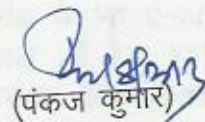 (पंकज कुमार)